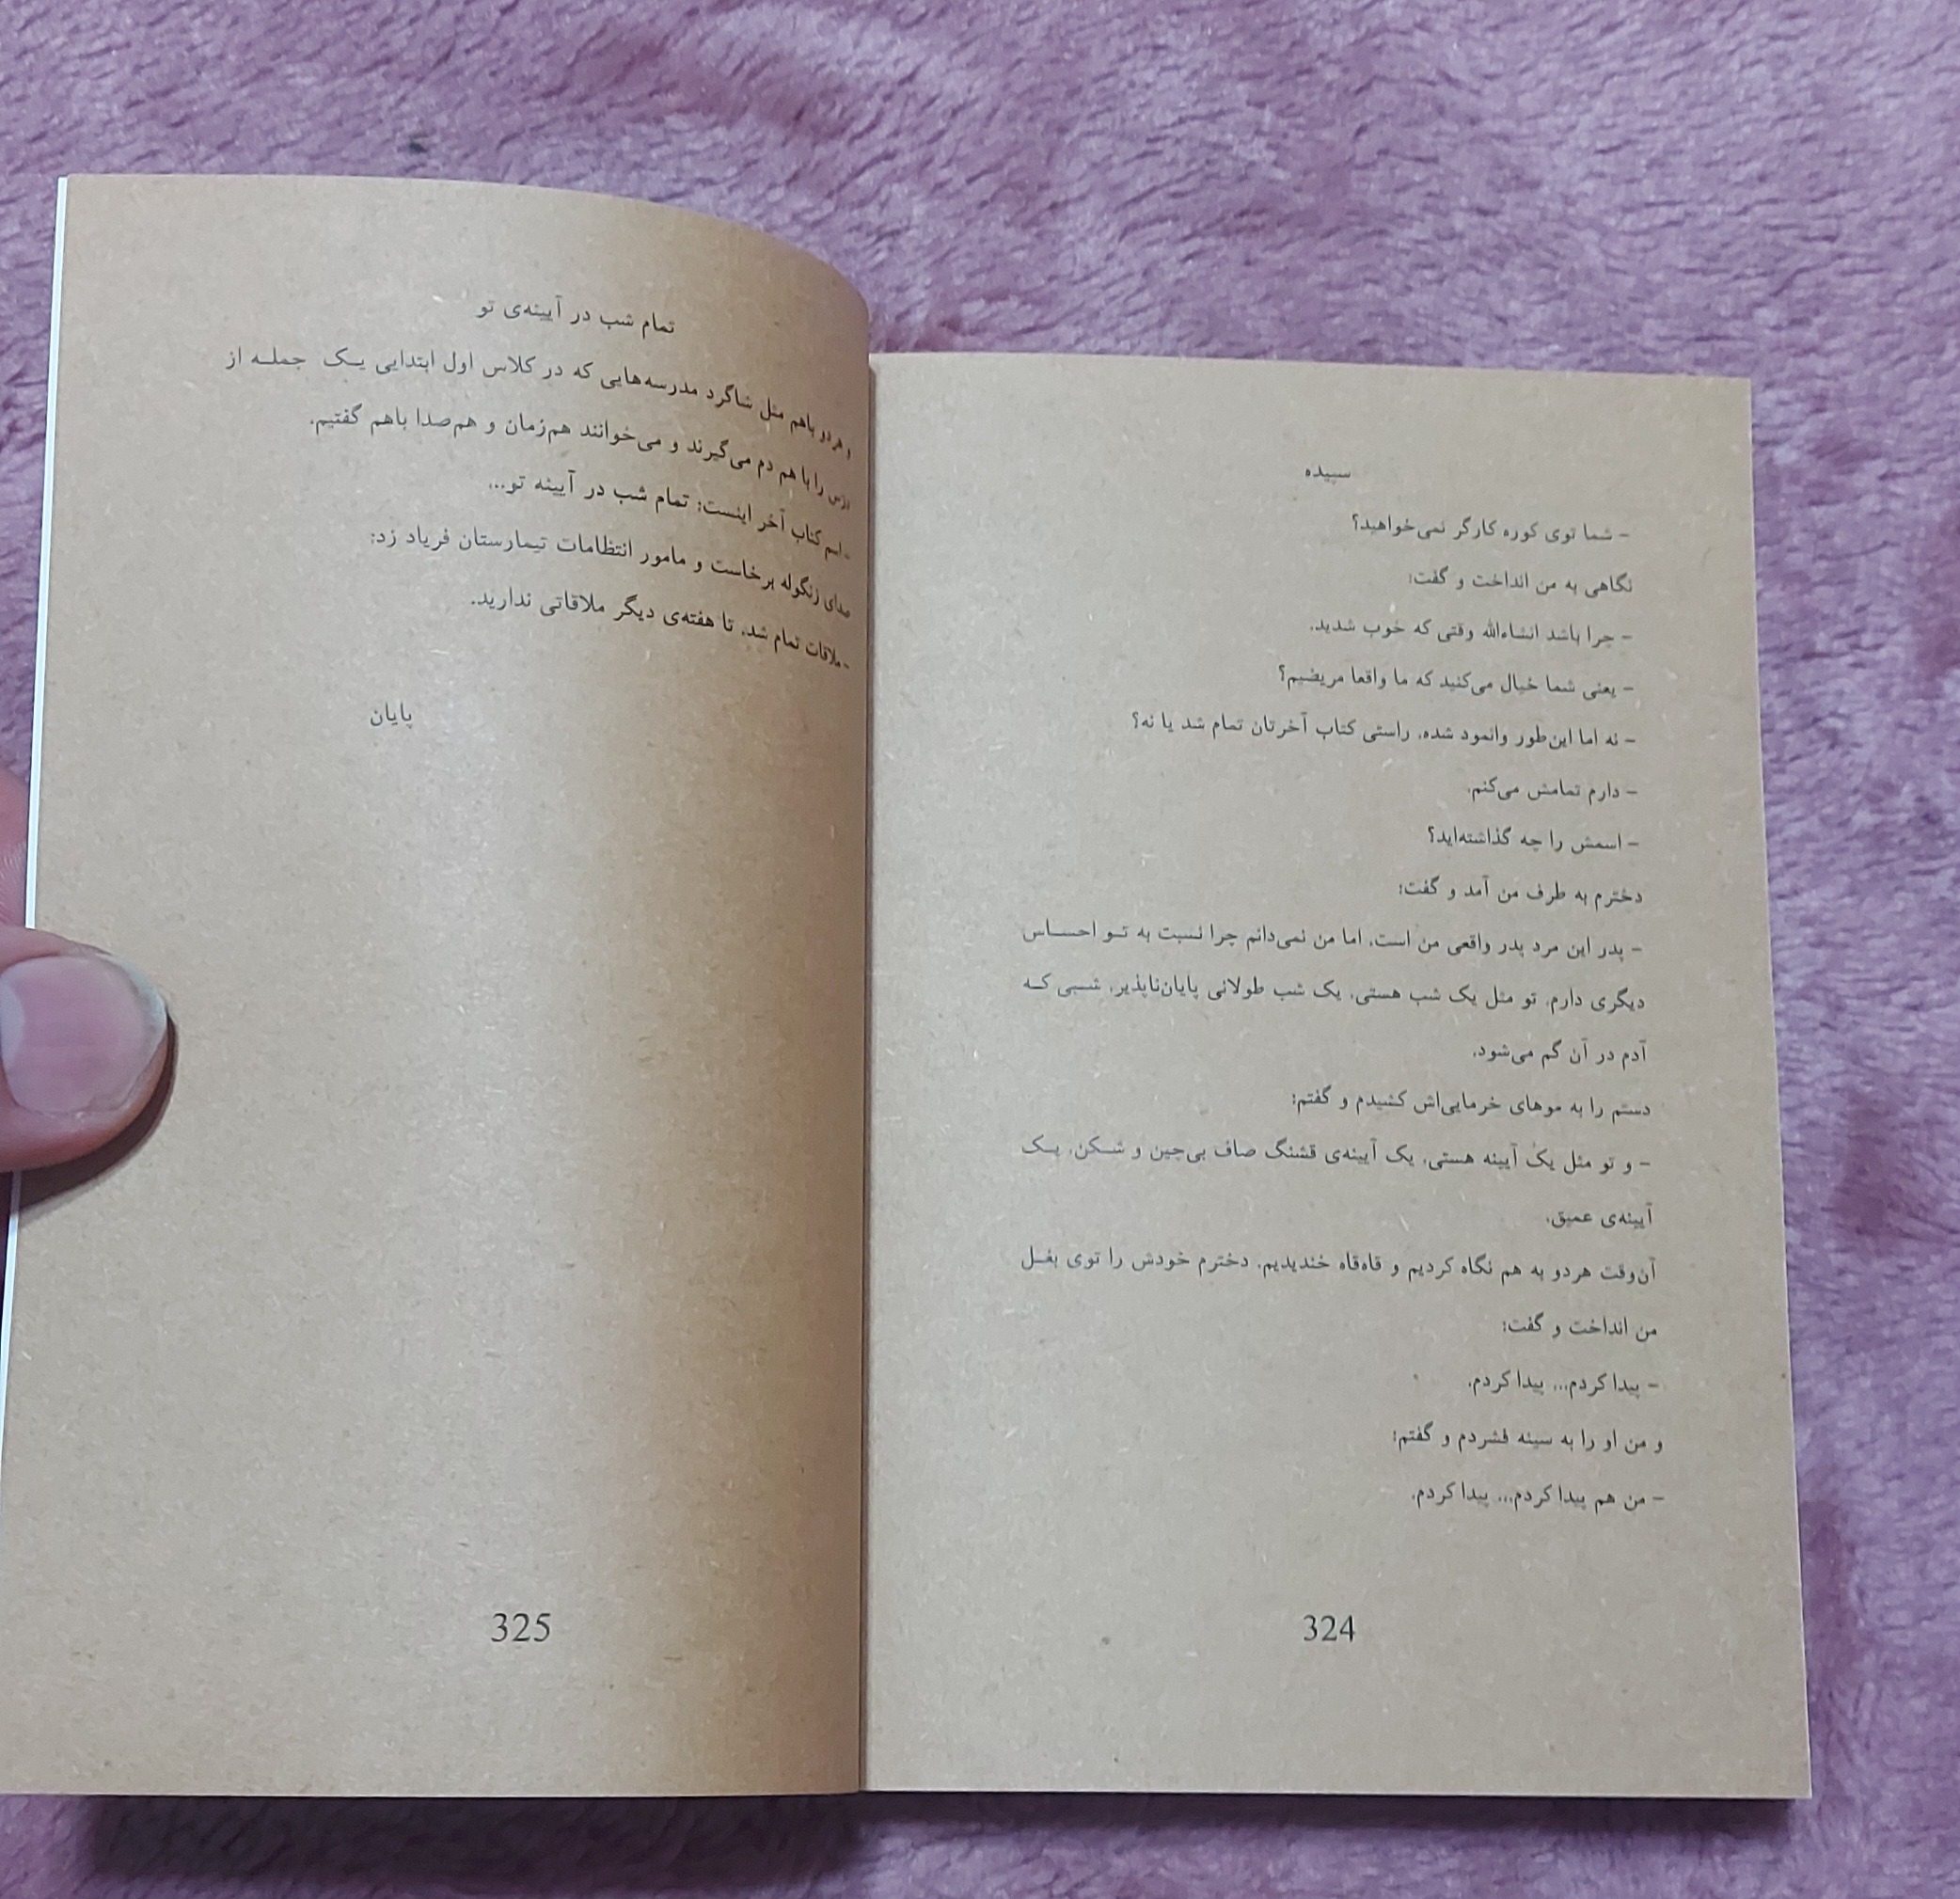 سپیده
- شما توی کوره کارگر نمی‌خواهید؟
نگاهی به من انداخت و گفت:
- چرا باشد انشاءالله وقتی که خوب شدید.
- یعنی شما خیال می‌کنید که ما واقعا مریضیم؟
- نه اما این‌طور وانمود شده. راستی کتاب آخرتان تمام شد یا نه؟
- دارم تمامش می‌کنم.
- اسمش را چه گذاشته‌اید؟
دخترم به طرف من آمد و گفت:
- پدر این مرد پدر واقعی من است. اما من نمی‌دانم چرا نسبت به تو احساس
دیگری دارم. تو مثل یک شب هستی. یک شب طولانی پایان‌ناپذیر. شبی که
آدم در آن گم می‌شود.
دستم را به موهای خرمایی‌اش کشیدم و گفتم:
- و تو مثل یک آیینه هستی. یک آیینه‌ی قشنگ صاف بی‌چین و شکن. یک
آیینه‌ی عمیق.
آن‌وقت هردو به هم نگاه کردیم و قاه‌قاه خندیدیم. دخترم خودش را توی بغل
من انداخت و گفت:
- پیدا کردم... پیدا کردم.
و من او را به سینه فشردم و گفتم:
- من هم پیدا کردم... پیدا کردم.
324
تمام شب در آیینه‌ی تو
و هردو باهم مثل شاگرد مدرسه‌هایی که در کلاس اول ابتدایی یک جمله از
درس را با هم دم می‌گیرند و می‌خوانند هم‌زمان و هم‌صدا باهم گفتیم.
- اسم کتاب آخر اینست: تمام شب در آیینه تو...
صدای زنگوله برخاست و مامور انتظامات تیمارستان فریاد زد:
- ملاقات تمام شد. تا هفته‌ی دیگر ملاقاتی ندارید.
پایان
325